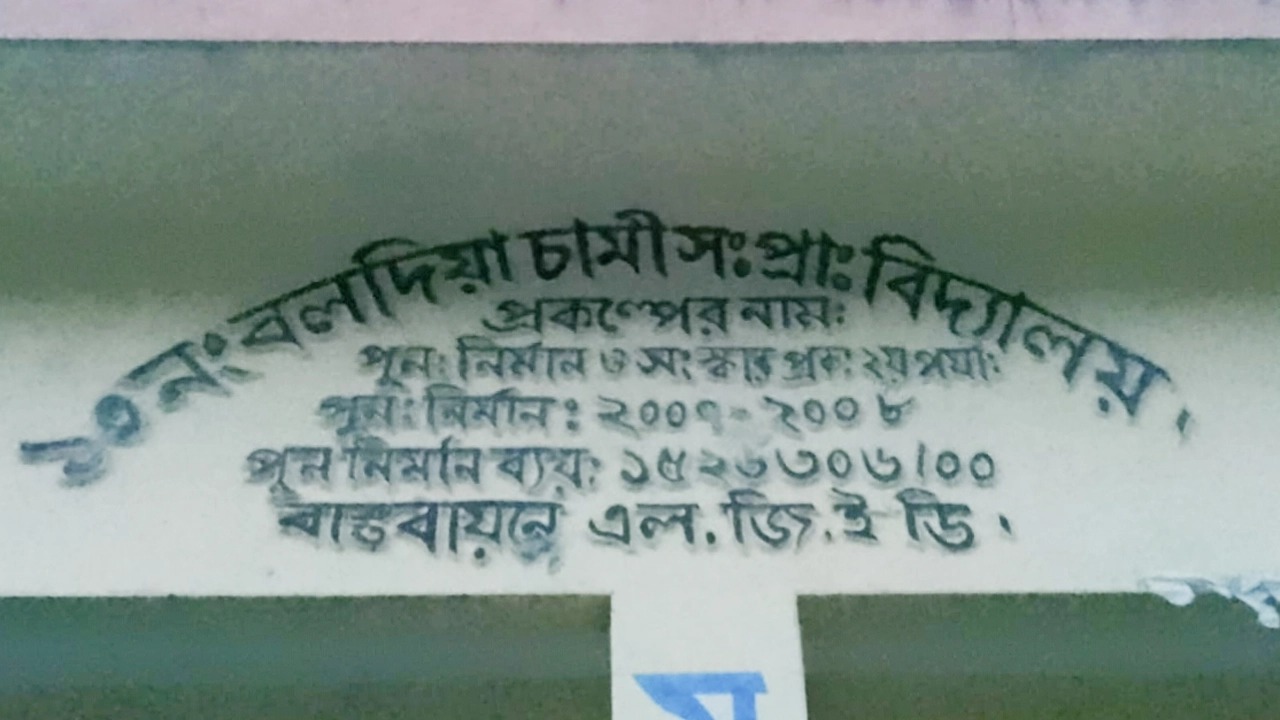 ১৩নং বলদিয়া চামী সঃ প্রাঃ বিদ্যালয়।
প্রকল্পের নামঃ
পুনঃ নির্মান ও সংস্কার প্রকঃ ২য় পর্যাঃ
পুনঃ নির্মান : ২০০৭-২০০৮
পুন নির্মান ব্যয়ঃ ১৫২৬৩০৬/০০
বাস্তবায়নে এল.জি.ই ডি।